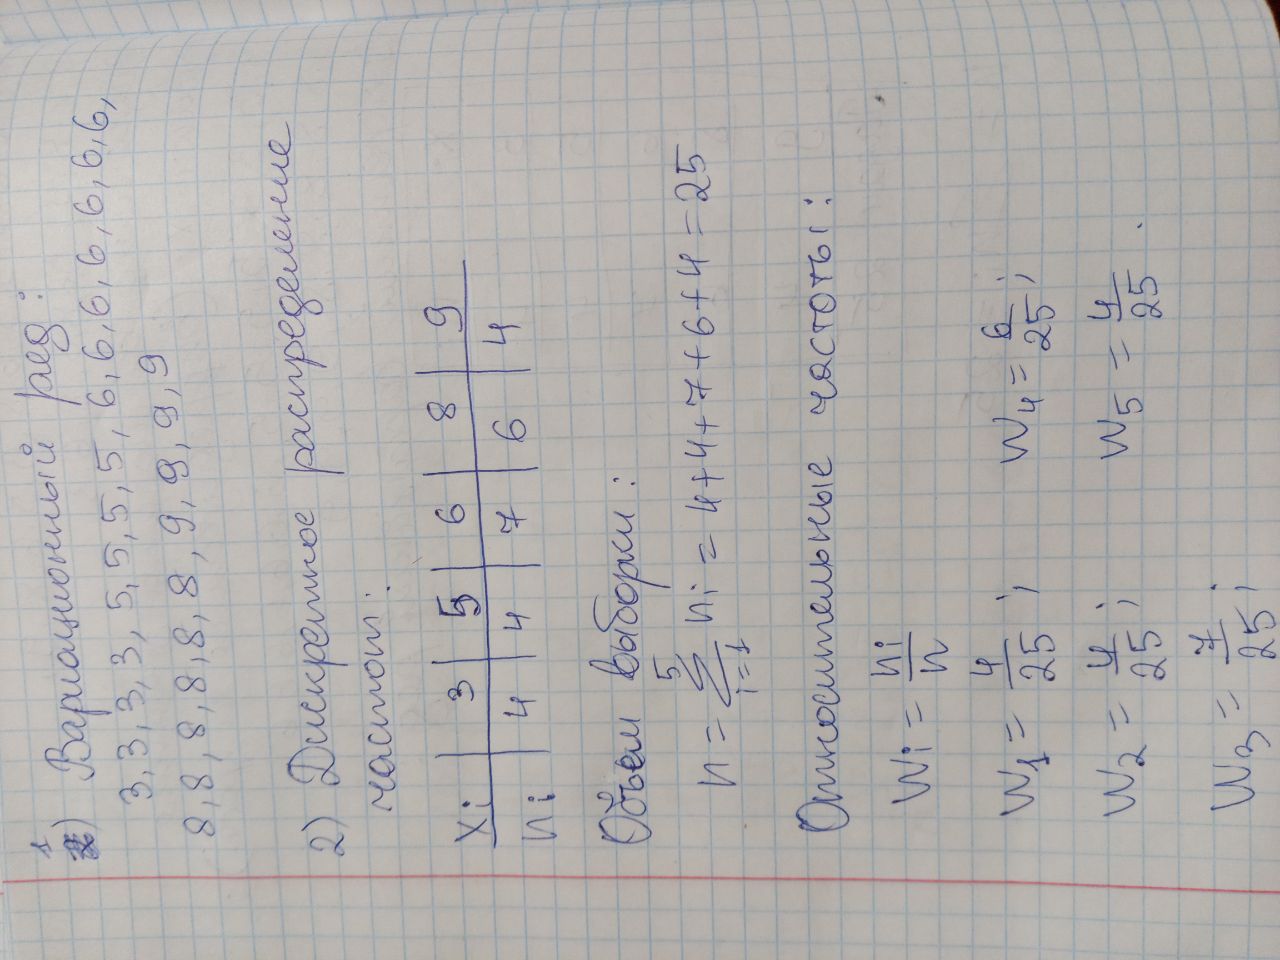 1) Вариационный ряд:
3, 3, 3, 3, 5, 5, 5, 5, 6, 6, 6, 6, 6, 6, 6,
8, 8, 8, 8, 8, 8, 9, 9, 9, 9
2) Дискретное распределение
частот:
xi | 3 | 5 | 6 | 8 | 9
ni | 4 | 4 | 7 | 6 | 4
Объем выборки:
n = ∑_{i=1}^{5} ni = 4+4+7+6+4 = 25
Относительные частоты:
Wi = ni/n
W1 = 4/25 ; W4 = 6/25 ;
W2 = 4/25 ; W5 = 4/25 .
W3 = 7/25 ;